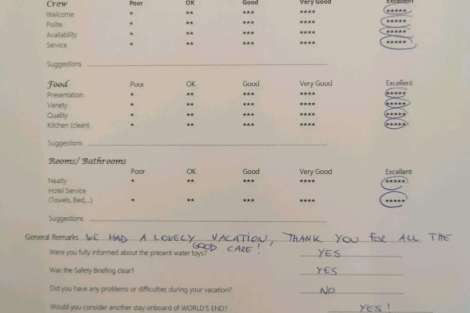 Crew Poor OK Good Very Good Excellent
Welcome * ** *** **** *****
Polite * ** *** **** *****
Availability * ** *** **** *****
Service * ** *** **** *****
Suggestions
Food Poor OK Good Very Good Excellent
Presentation * ** *** **** *****
Variety * ** *** **** *****
Quality * ** *** **** *****
Kitchen (clean) * ** *** **** *****
Suggestions
Rooms/ Bathrooms
Poor OK Good Very Good Excellent
Neatly * ** *** **** *****
Hotel Service
(Towels, Bed,...) * ** *** **** *****
Suggestions
General Remarks WE HAD A LOVELY VACATION, THANK YOU FOR ALL THE
GOOD CARE!
Were you fully informed about the present water toys? YES
Was the Safety Briefing clear? YES
Did you have any problems or difficulties during your vacation? NO
Would you consider another stay onboard of WORLD'S END? YES!